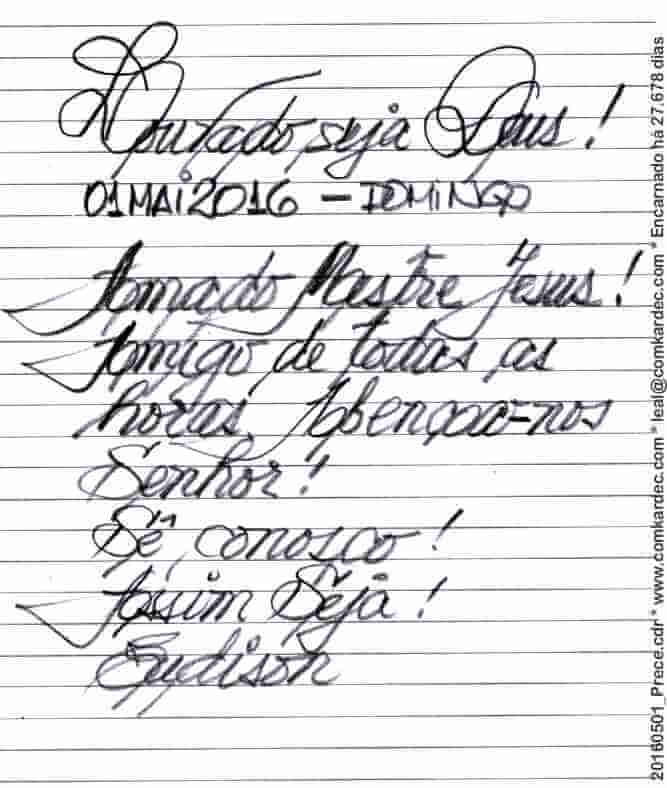 Louvado seja Deus!
01MAI2016 - DOMINGO
Amado Mestre Jesus!
Amigo de todas as
horas, Abençoa-nos
Senhor!
Sê conosco!
Assim Seja!
Eudison
20160501_Prece.cdr * www.comkardec.com * leal@comkardec.com * Encarnado há 27.678 dias